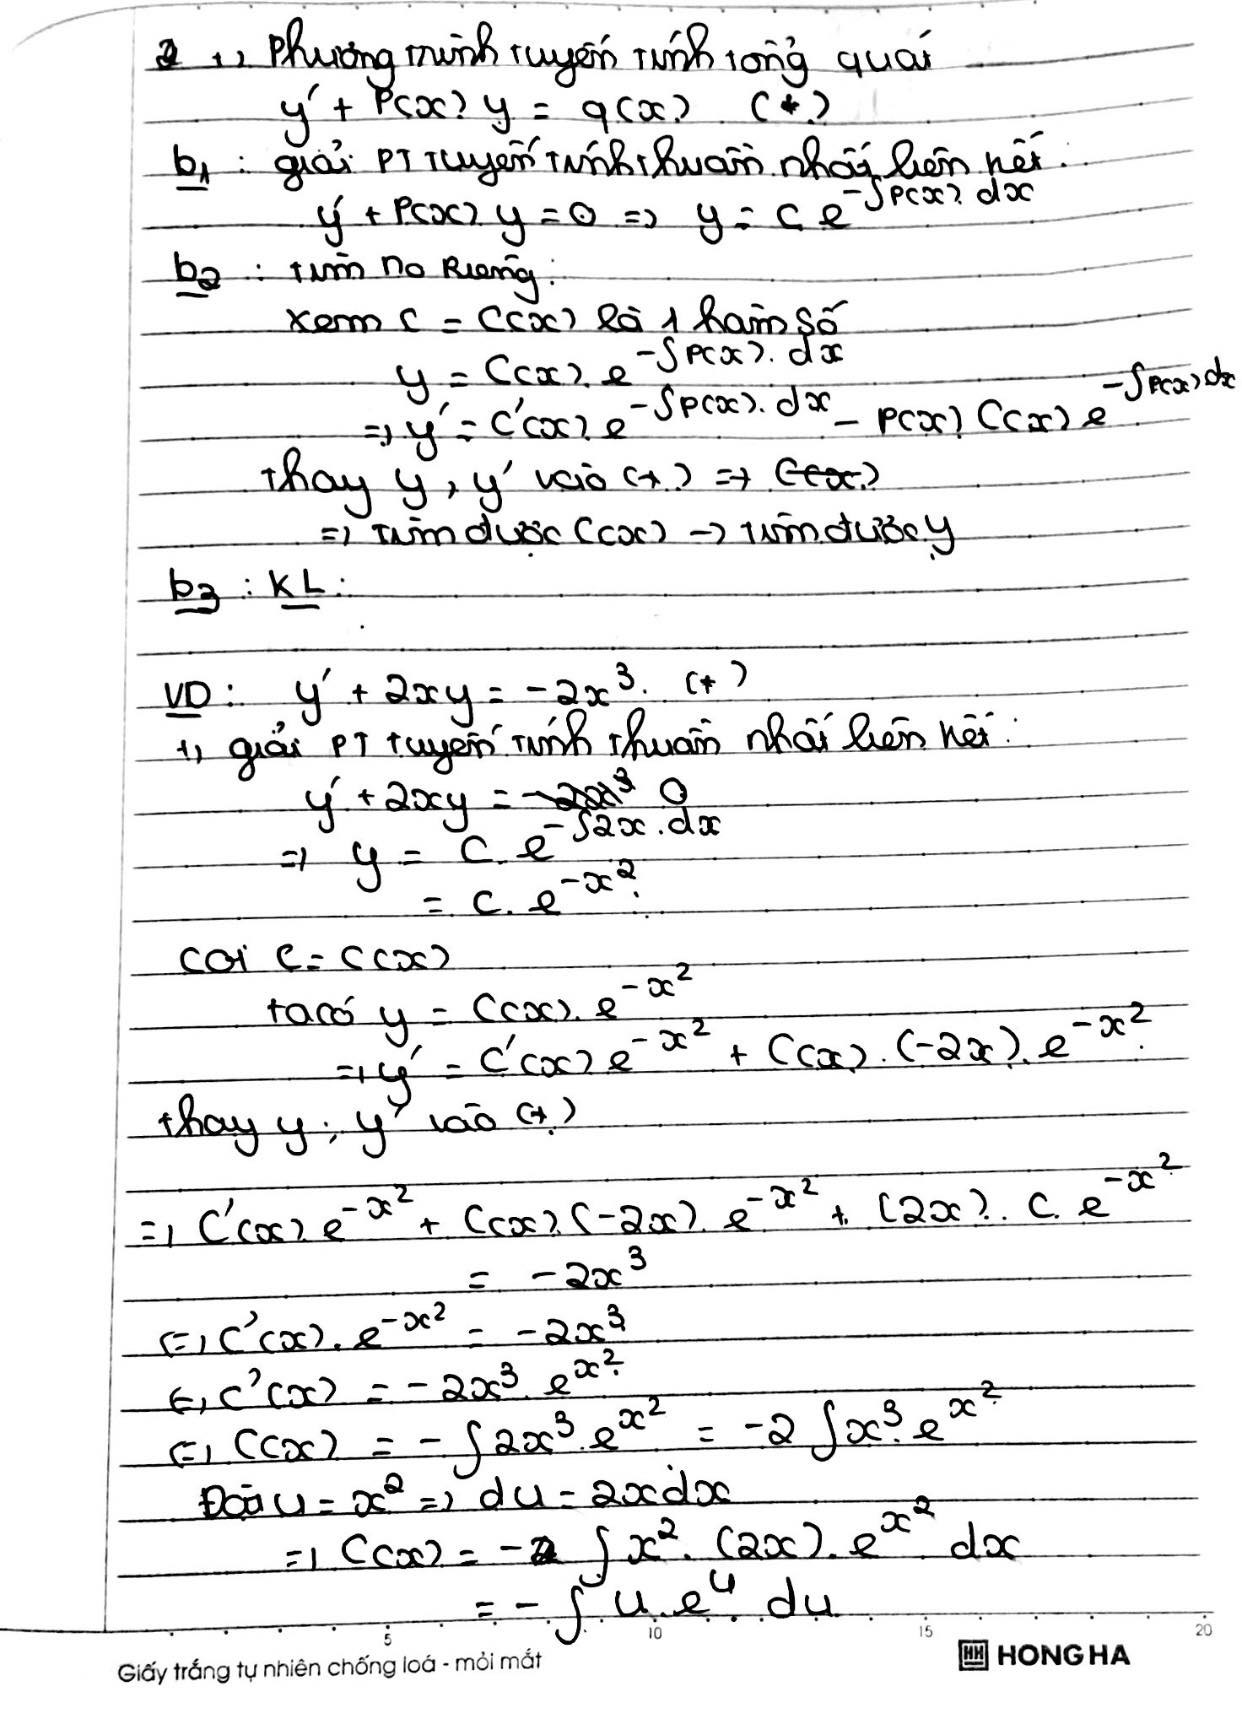 2 +, Phương trình tuyến tính tổng quát
y' + P(x) y = q(x) (*)
b1 : giải PT tuyến tính thuần nhất liên kết :
y' + P(x) y = 0 => y = C e^{-∫P(x) dx}
b2 : tìm no Riêng :
xem C = C(x) là 1 hàm số
y = C(x). e^{-∫P(x). dx}
=> y' = C'(x) e^{-∫P(x). dx} - P(x) C(x) e^{-∫P(x) dx}
thay y, y' vào (*) => C(x)
=> tìm được C(x) -> tìm được y
b3 : KL :
VD : y' + 2xy = -2x³. (*)
+, giải PT tuyến tính thuần nhất liên kết :
y' + 2xy = -2x³ 0
=> y = C. e^{-∫2x. dx}
= C. e^{-x²}
coi C = C(x)
ta có y = C(x). e^{-x²}
=> y' = C'(x) e^{-x²} + C(x). (-2x). e^{-x²}
thay y; y' vào (*)
=> C'(x) e^{-x²} + C(x). (-2x). e^{-x²} + (2x). C. e^{-x²}
= -2x³
<=> C'(x). e^{-x²} = -2x³
<=> C'(x) = -2x³. e^{x²}
<=> C(x) = - ∫ 2x³. e^{x²} = -2 ∫ x³. e^{x²}
Đặt u = x² => du = 2x dx
=> C(x) = - ∫ x². (2x). e^{x²} dx
= - ∫ u. e^u. du
5 10 15 20
Giấy trắng tự nhiên chống loá - mỏi mắt HH HONG HA